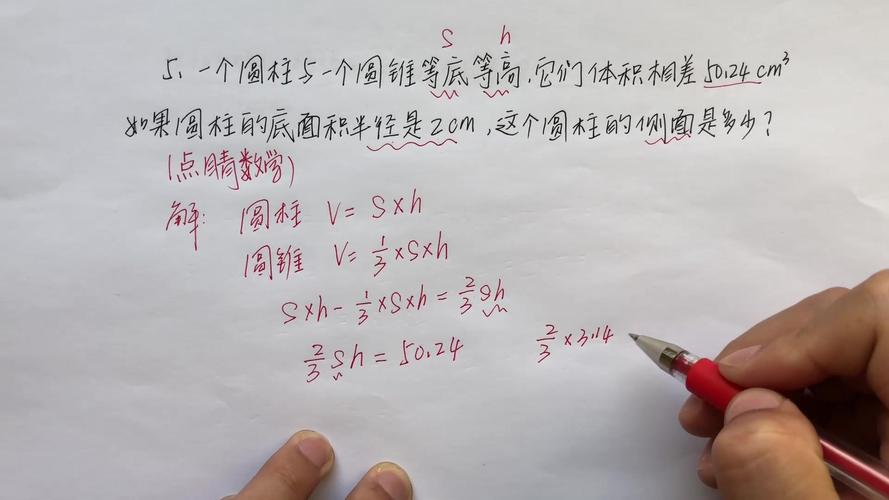 S h
5、一个圆柱与一个圆锥等底等高,它们体积相差50.24cm³
如果圆柱的底面积半径是2cm,这个圆柱的侧面是多少?
(点睛数学)
解: 圆柱 V=S×h
圆锥 V=1/3×S×h
S×h-1/3×S×h=2/3Sh
2/3Sh=50.24 2/3×3.14